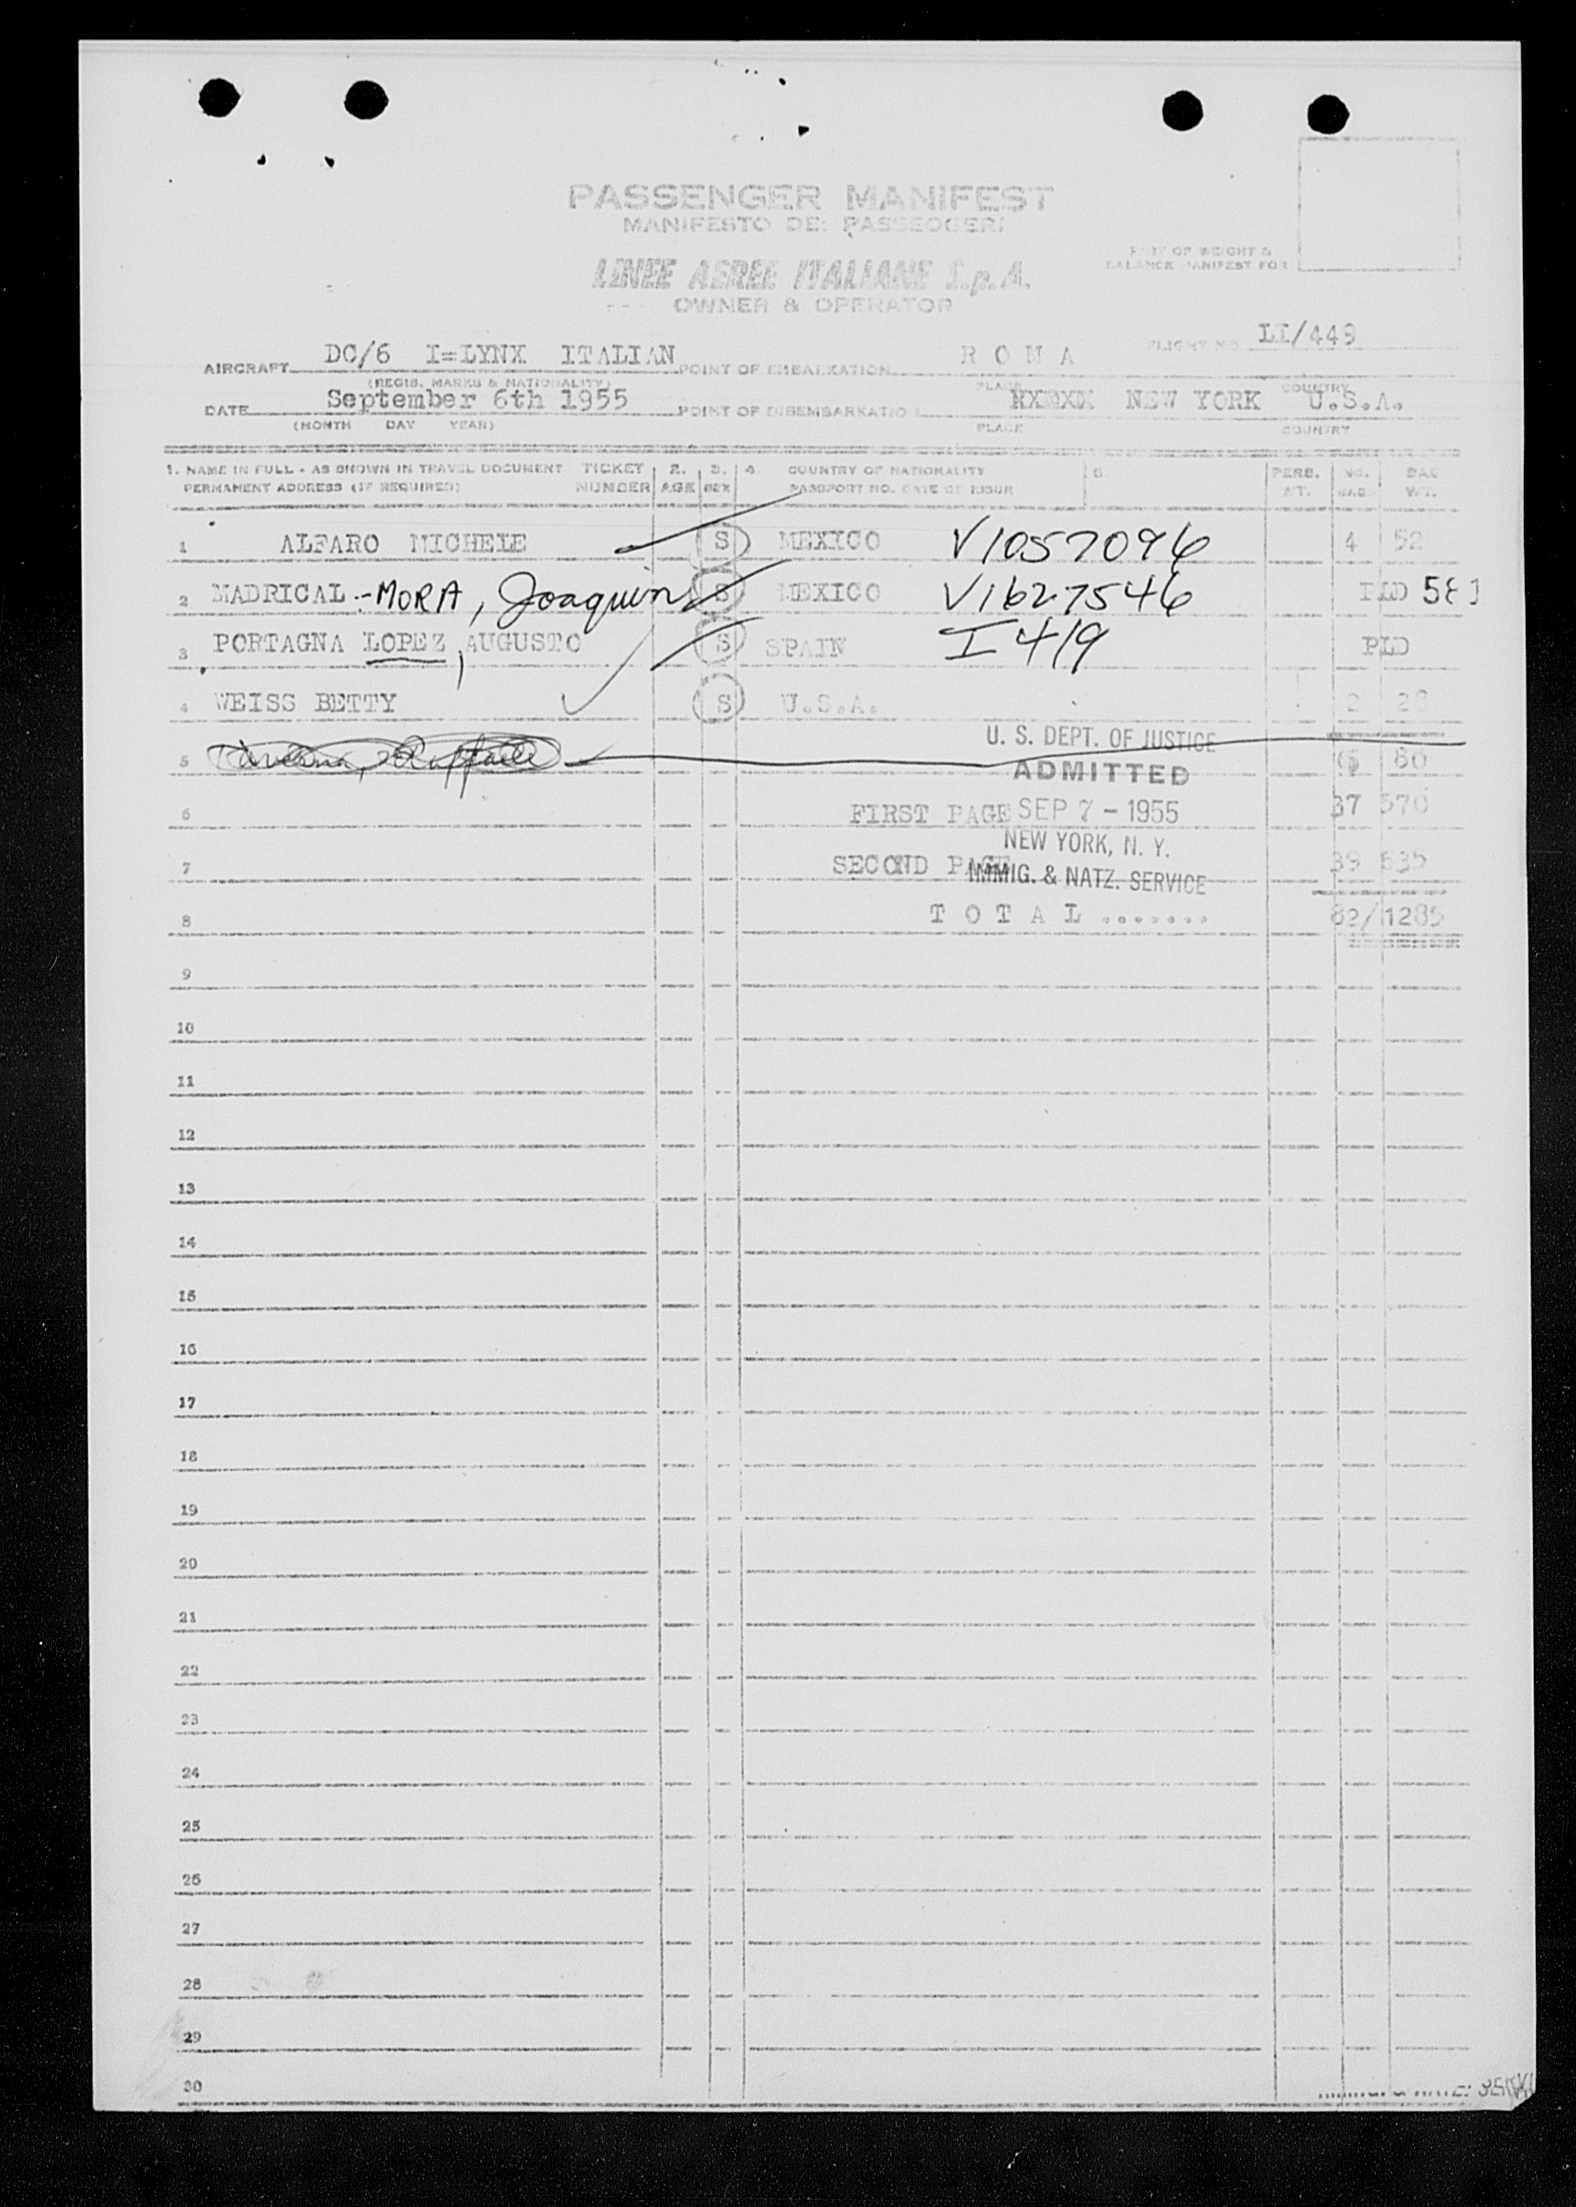 PASSENGER MANIFEST
MANIFESTO DEI PASSEGGERI
PART OF WEIGHT &
BALANCE MANIFEST FOR
LINEE AEREE ITALIANE S.p.A.
OWNER & OPERATOR
AIRCRAFT DC/6 I=LYNX ITALIAN POINT OF EMBARKATION R O M A FLIGHT NO. LI/448
(REGIS. MARKS & NATIONALITY) PLACE COUNTRY
DATE September 6th 1955 POINT OF DISEMBARKATION NEW YORK U.S.A.
(MONTH DAY YEAR) PLACE COUNTRY
1. NAME IN FULL - AS SHOWN IN TRAVEL DOCUMENT TICKET 2. 3. 4. COUNTRY OF NATIONALITY 5. PERS. NO. BAG
PERMANENT ADDRESS (IF REQUIRED) NUMBER AGE SEX PASSPORT NO. DATE OF ISSUE WT. BAG. WT.
1 ALFARO MICHELE S MEXICO V1057096 4 52
2 MADRICAL -MORA, Joaquin S MEXICO V1627546 PLD 581
3 PORTAGNA LOPEZ, AUGUSTO S SPAIN I 419 PLD
4 WEISS BETTY S U.S.A. 2 28
U. S. DEPT. OF JUSTICE
5 80
ADMITTED
6 FIRST PAGE SEP 7 - 1955 37 570
NEW YORK, N. Y.
7 SECOND PAGE 39 635
IMMIG. & NATZ. SERVICE
8 T O T A L ....... 82/1285
9
10
11
12
13
14
15
16
17
18
19
20
21
22
23
24
25
26
27
28
29
30